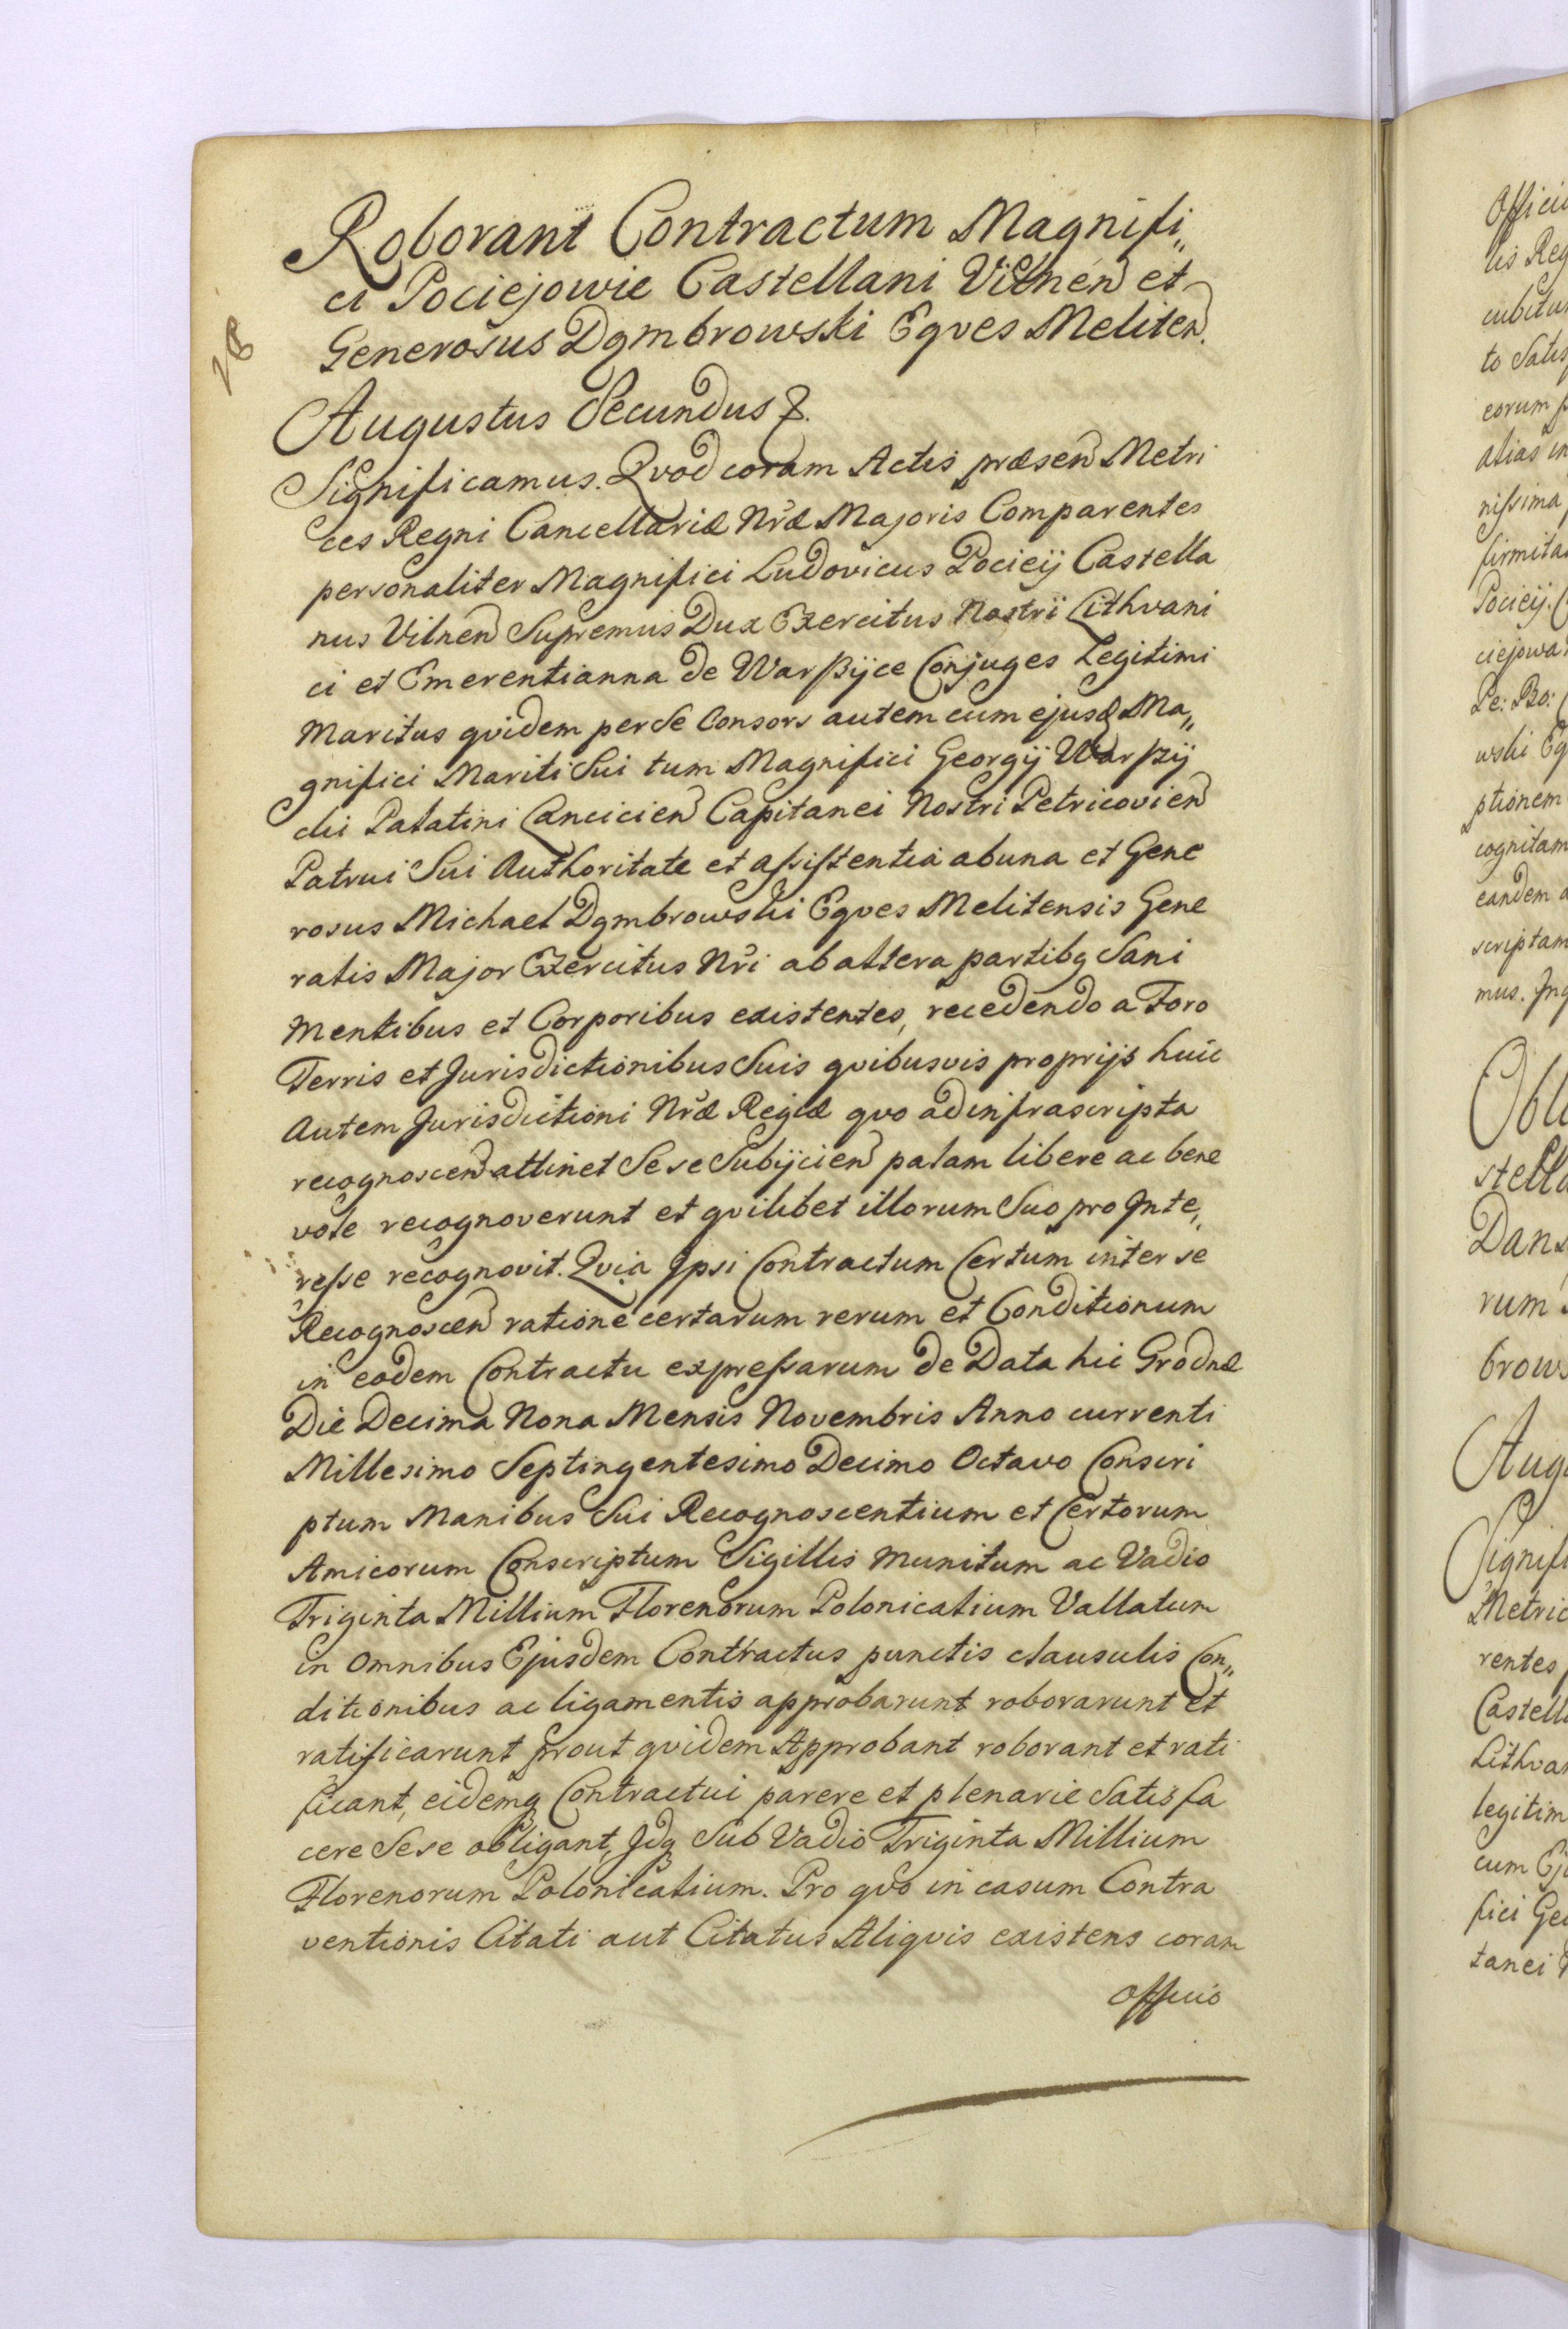 Roborant Contractum Magnifi„
ci Pociejowie Castellani Vilnen et
Generosus Dąmbrowski Eqves Meliten.
28
Augustus Secundus &.
Significamus. Qvod coram Actis præsen Metri
ces Regni Cancellariæ Nræ Majoris Comparentes
personaliter Magnifici Ludovicus Pocieij Castella
nus Vilnen Supremus Dux Exercitus Nostri Lithvani
ci et Emerentianna de Warszÿce Conjuges Legitimi
Maritus qvidem per Se Consors autem cum ejusd Ma„
gnifici Mariti Sui tum Magnifici Georgij Warszÿ
cki Palatini Lancicien Capitanei Nostri Petricovien
Patrui Sui Authoritate et assistentia ab una et Gene
rosus Michael Dąmbrowski Eqves Melitensis Gene
ralis Major Exercitus Nri ab altera partibq Sani
Mentibus et Corporibus existentes, recedendo a Foro
Terris et Jurisdictionibus Suis qvibusvis proprijs huic
Autem Jurisdictioni Nræ Regiæ qvo ad infrascripta
recognoscen attinet Sese Subijcien palam libere ac bene
vole recognoverunt et qvilibet illorum Suo pro Inte„
resse recognovit. Qvia Ipsi Contractum Certum inter se
Recognoscen ratione certarum rerum et Conditionum
in eodem Contractu expressarum de Data hic Grodnæ
Die Decima Nona Mensis Novembris Anno currenti
Millesimo Septingentesimo Decimo Octavo Conscri
ptum Manibus Sui Recognoscentium et Certorum
Amicorum Conscriptum Sigillis munitum ac Vadio
Triginta Millium Florenorum Polonicalium Vallatum
in Omnibus Ejusdem Contractus punctis clausulis Con„
ditionibus ac ligamentis approbarunt roborarunt et
ratificarunt prout qvidem Approbant roborant et rati
ficant, eidemq Contractui parere et plenarie Satisfa
cere Sese obligant, Idq Sub Vadio Triginta Millium
Florenorum Polonicalium. Pro qvo in casum Contra
ventionis Citati aut Citatus Aliqvis existens coram
Officio